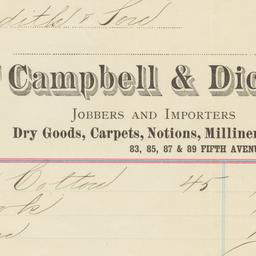 & Son
Campbell & Dic
JOBBERS AND IMPORTERS
Dry Goods, Carpets, Notions, Milliner
83, 85, 87 & 89 FIFTH AVENU
Cotton 45